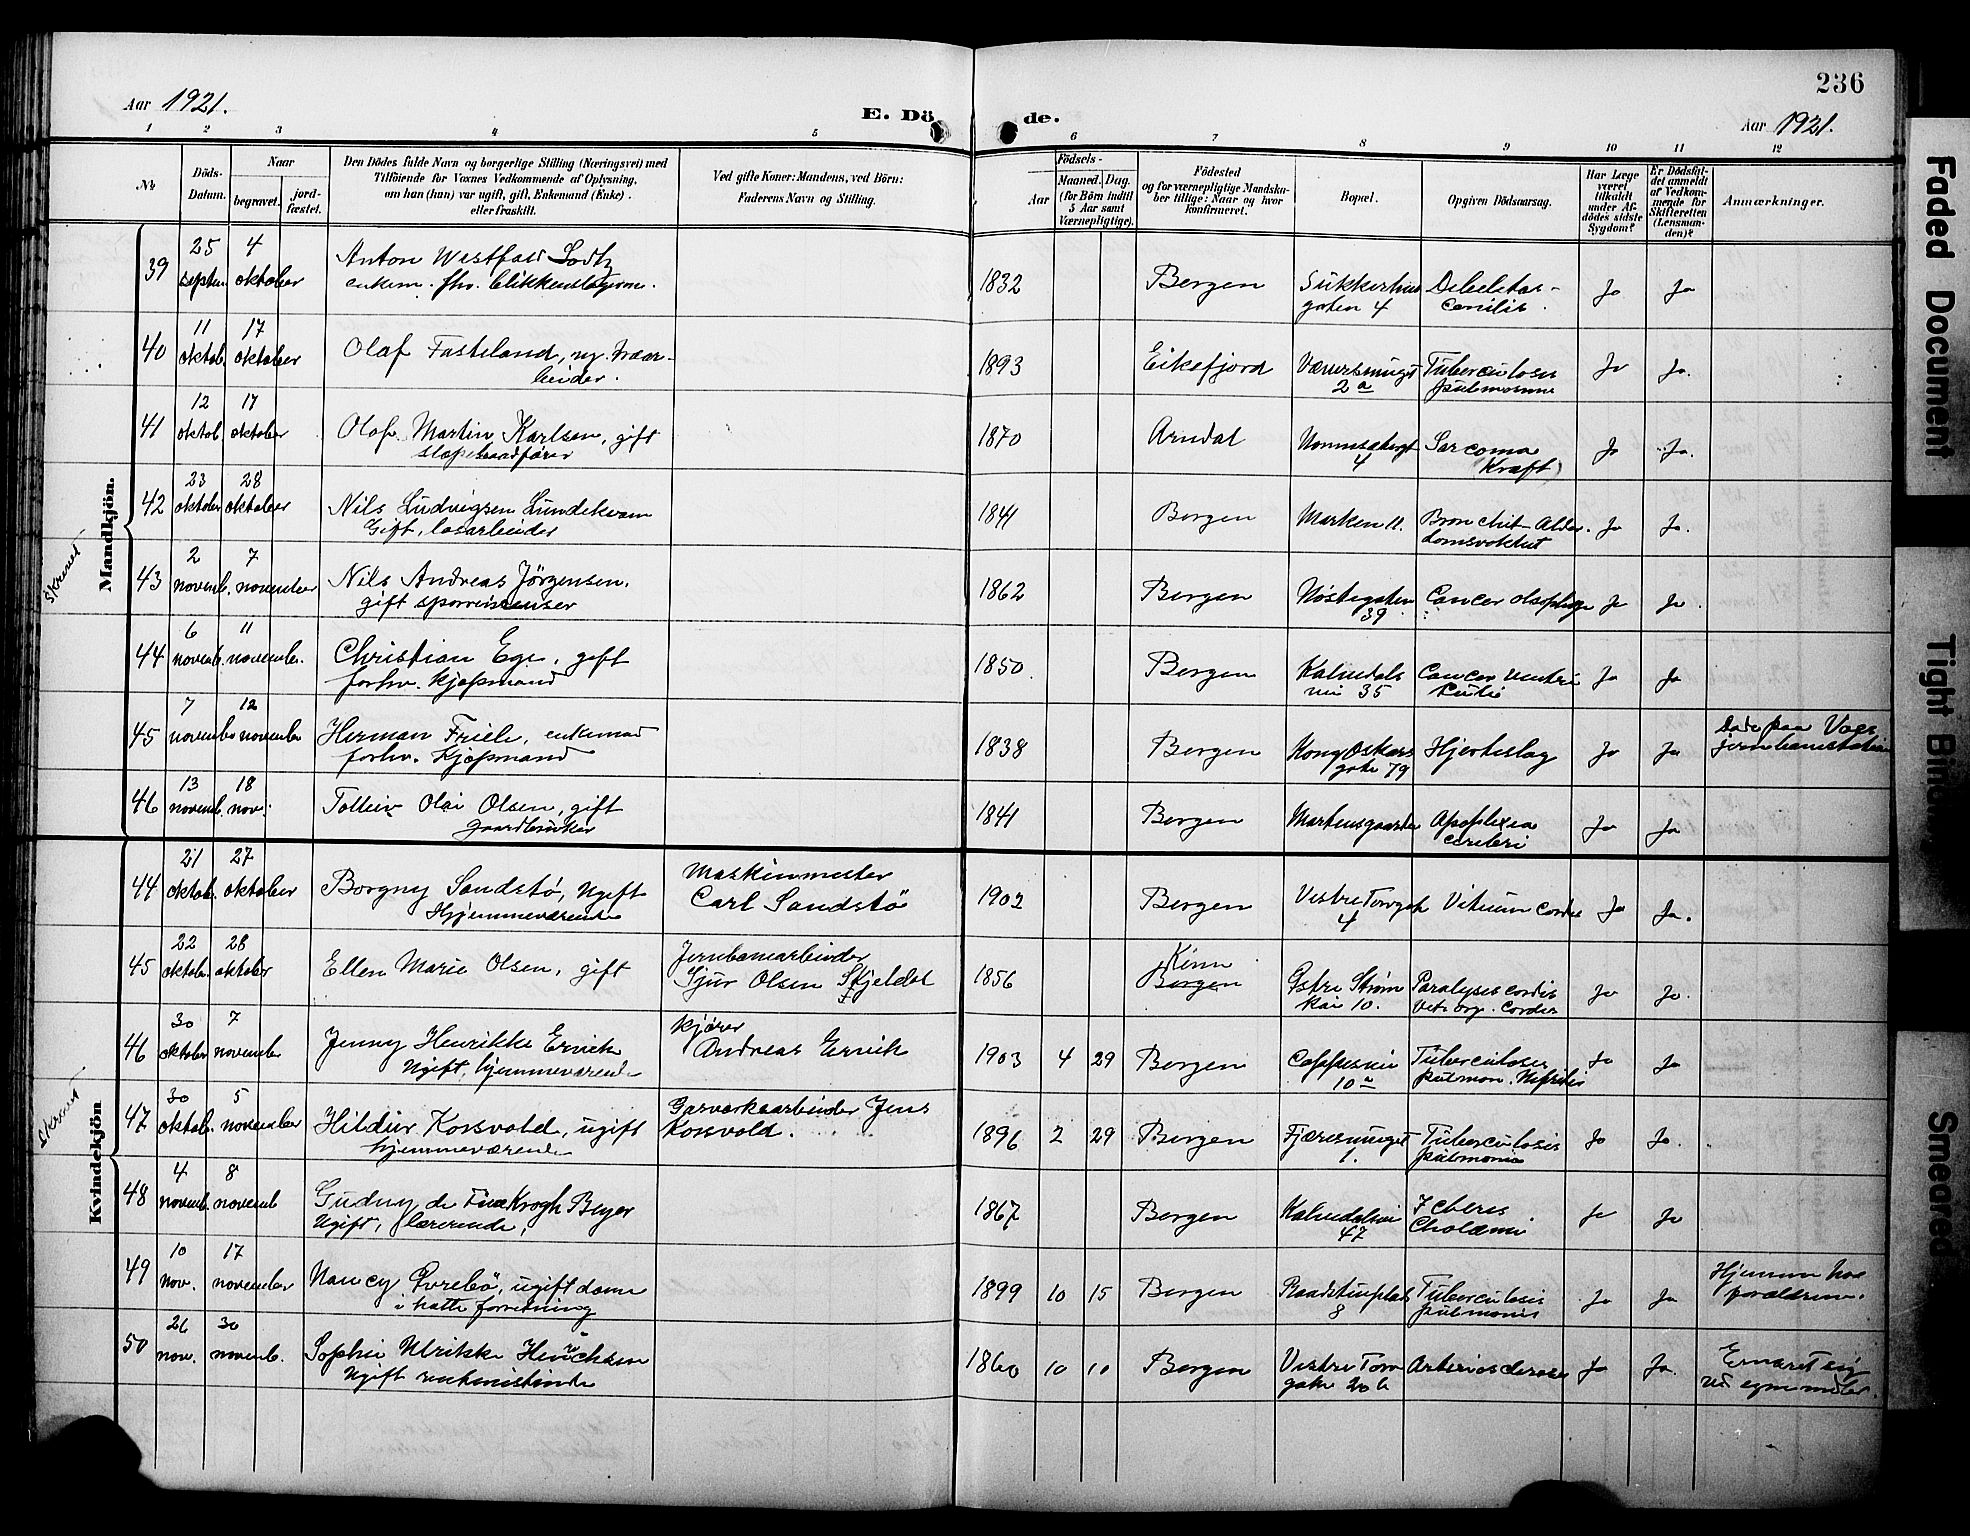 236
Aar 1921.
E. Döde.
Aar 1921.
1 2 3 4 5 6 7 8 9 10 11 12
No
Döds-Datum.
Naar
begravet.
jordfæstet.
Den Dödes fulde Navn og borgerlige Stilling (Næringsvei) med
Tilföiende for Voxnes Vedkommende af Oplysning,
om han (hun) var ugift, gift, Enkemand (Enke)
eller fraskilt.
Ved gifte Koner: Mandens, ved Börn:
Faderens Navn og Stilling.
Födsels-
Aar
Maaned. Dag.
(for Börn indtil
5 Aar samt
Værnepligtige).
Födested
og for værnepligtige Mandskaber tillige: Naar og hvor
Konfirmeret.
Bopæl.
Opgiven Dödsaarsag.
Har Læge
været
tilkaldt
under Afdödes sidste
Sygdom?
Er Dödsfaldet anmeldt
af Vedkommende for
Skifteretten
(Lensmanden)?
Anmærkninger.
Mandkjön.
39 25 septem 4 oktober Anton Westfal
enkem. fhv. 1832 Bergen Sukkerhus
gaten 4 Ja Ja
40 11 oktob. 17 oktober Olaf Fasteland, ug.
1893 Eikefjord 2a Tuberculosis
Ja Ja.
41 12 oktob 17 oktober Olaf Martin Karlsen, gift
1870 Arndal 4 Sarcoma
(Kræft) Ja Ja.
42 23 oktober 28 oktober Nils Ludvigsen Lundekvam
Gift, losarbeider 1841 Bergen Marken 11. Bronchit - Alder
Ja Ja.
43 2 novemb. 7 november Nils Andreas Jörgensen.
gift 1862 Bergen Nöstegaten
39 Cancer Ja Ja.
44 6 novemb. 11 november. Christian Ege, gift
forhv. kjøpmand 1850 Bergen Kalvedals
vei 35 Cancer ventri
Ja Ja
45 7 novemb 12 november Herman Friele, enkemad
forhv. Kjøpmand 1838 Bergen Kong Oskars
gate 79 Hjerteslag Ja Ja Døde paa Voss
46 13 novemb. 18 nov. Olai Olsen, gift
gaardbruker 1841 Bergen Apoplexia
cerebri Ja Ja
Kvindekjön
44 21 oktob. 27 oktober Borgny Sandstö, Ugift
Hjemmeværende Maskinmester
Carl Sandstö 1902 Bergen Vestre Torvgt
4 Vitium cordis Ja Ja.
45 22 oktober 28 oktober Ellen Marie Olsen, gift
Jernbanearbeider
Sjur Olsen Skjeldal 1856 Kinn
Bergen Østre Strøm
kai 10. Paralysis cordis
Ja Ja.
46 30 oktober 7 november Jenny Henrikke Ervik
Ugift, hjemmeværende kjører
Andreas Ervik 1903 4 29 Bergen
10a Tuberculosis
pulmon. Nefritis Ja Ja
47 30 oktob. 5 november Hildur Korsvold, ugift
hjemmeværende Gasverksarbeider Jens
Korsvold. 1896 2 29 Bergen Fjæresmuget
1. Tuberculosis
pulmonis Ja Ja.
48 4 novemb. 8 novemb Gudny de Fine Krogh Beyer
Ugift, lærerinde, 1867 Bergen Kalvedalsvei
47 Icterus
Cholæmi Ja Ja
49 10 nov. 17 november Nancy ugift dame
i hatteforretning 1899 10 15 Bergen Raadstuplads
8 Tuberculosis
pulmonis Ja Ja Hjemme hos
forældrene.
50 26 nov. 30 novemb. Sophie Ulrikke Henrichsen
Ugift 1860 10 10 Bergen Vestre Torv
gate 20 b Arteriosclerose Ja Ja. Ernæret sig
ved egne midler.
Faded Document
Tight Binding
Smeared